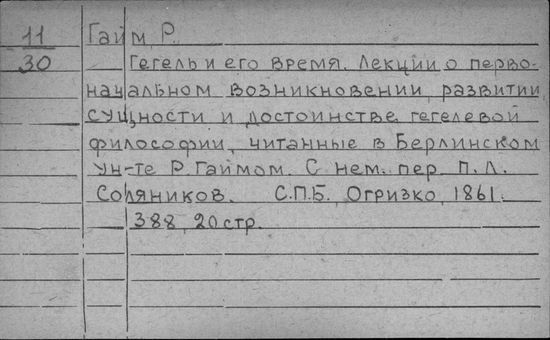 11 Гайм, Р.
30 Гегель и его время. Лекции о перво-
начальном возникновении, развитии,
сущности и достоинстве гегелевой
философии, читанные в Берлинском
ун-те Р. Гаймом. С нем. пер. П. Л.
Соляников. С.П.Б., Огризко, 1861.
388, 20 стр.